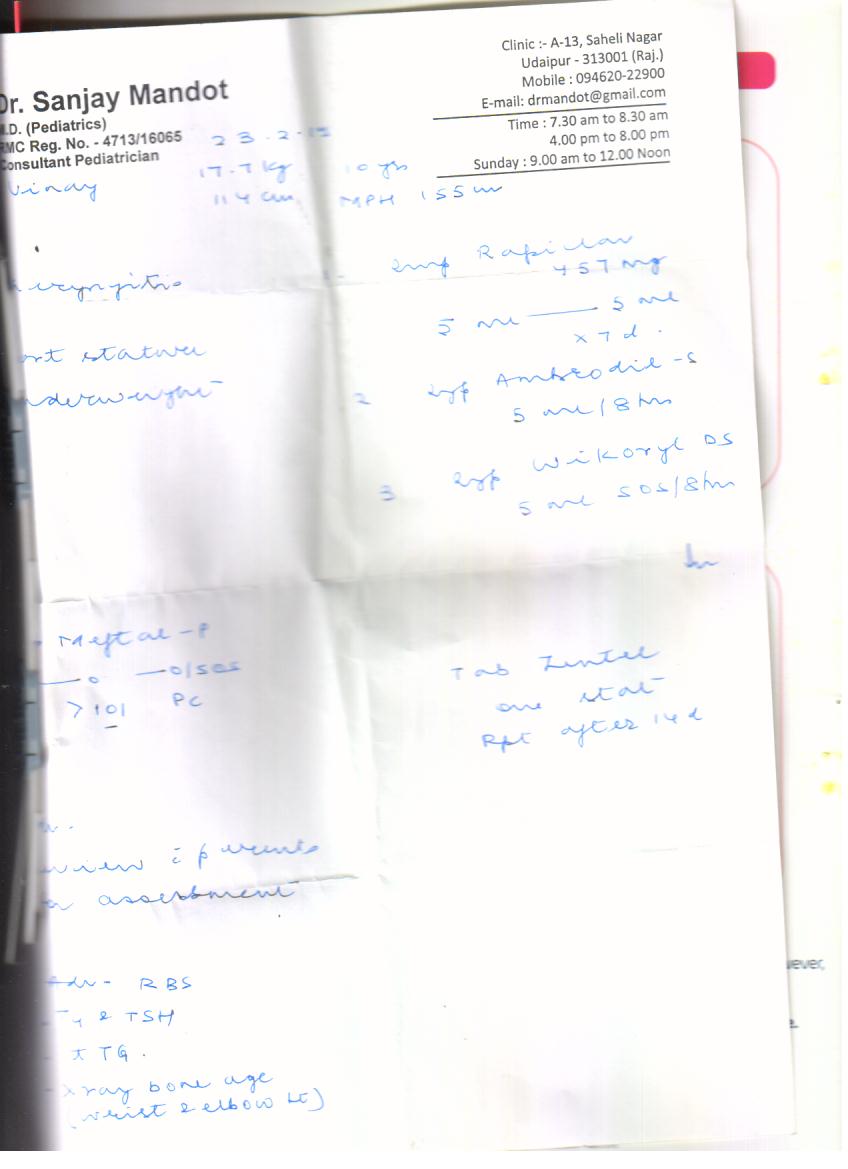 Dr. Sanjay Mandot
M.D. (Pediatrics)
RMC Reg. No. - 4713/16065
Consultant Pediatrician
Clinic :- A-13, Saheli Nagar
Udaipur - 313001 (Raj.)
Mobile : 094620-22900
E-mail: drmandot@gmail.com
Time : 7.30 am to 8.30 am
4.00 pm to 8.00 pm
Sunday : 9.00 am to 12.00 Noon
23.2.
Vinay
17.7 kg 10 yrs
114 cm MPH 155 cm
457 mg
5 ml 5 ml
x 7 d.
2 Syp Ambrodil-S
5 ml / 8 hrs
3 Syp Wikoryl DS
5 ml SOS/8 hr
ryngitis
ort stature
nderweight
Meftal-P
0 0/SOS
>101 PC
Tab Zentel
one stat
Rpt after 14 d
view c̄ parents
assessment
Adv- RBS
T4 & TSH
tTG.
Xray bone age
(wrist & elbow Lt)
ever,